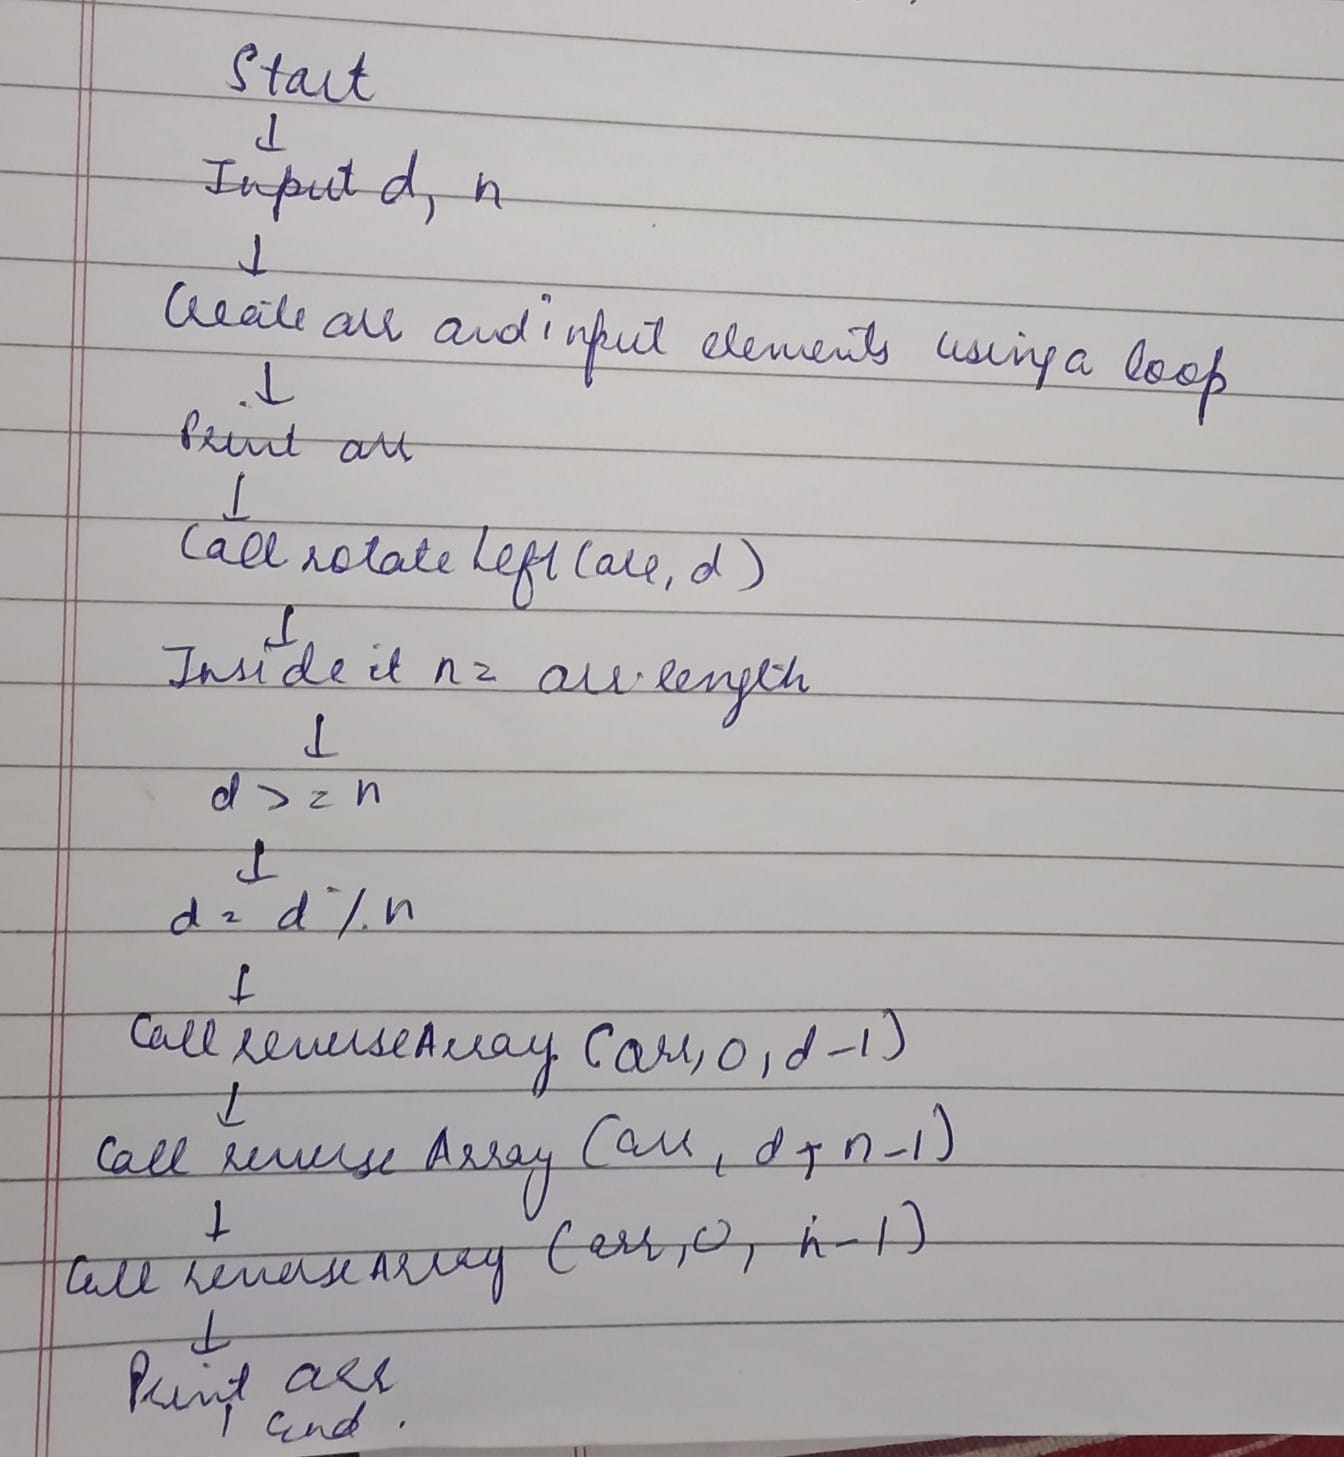 Start
↓
Input d, n
↓
Create arr and input elements using a loop
↓
Print arr
↓
Call rotateLeft(arr, d)
↓
Inside it n = arr.length
↓
d >= n
↓
d = d % n
↓
Call reverseArray (arr, 0, d-1)
↓
Call reverse Array (arr, d, n-1)
↓
Call reverseArray (arr, 0, n-1)
↓
Print arr
end.